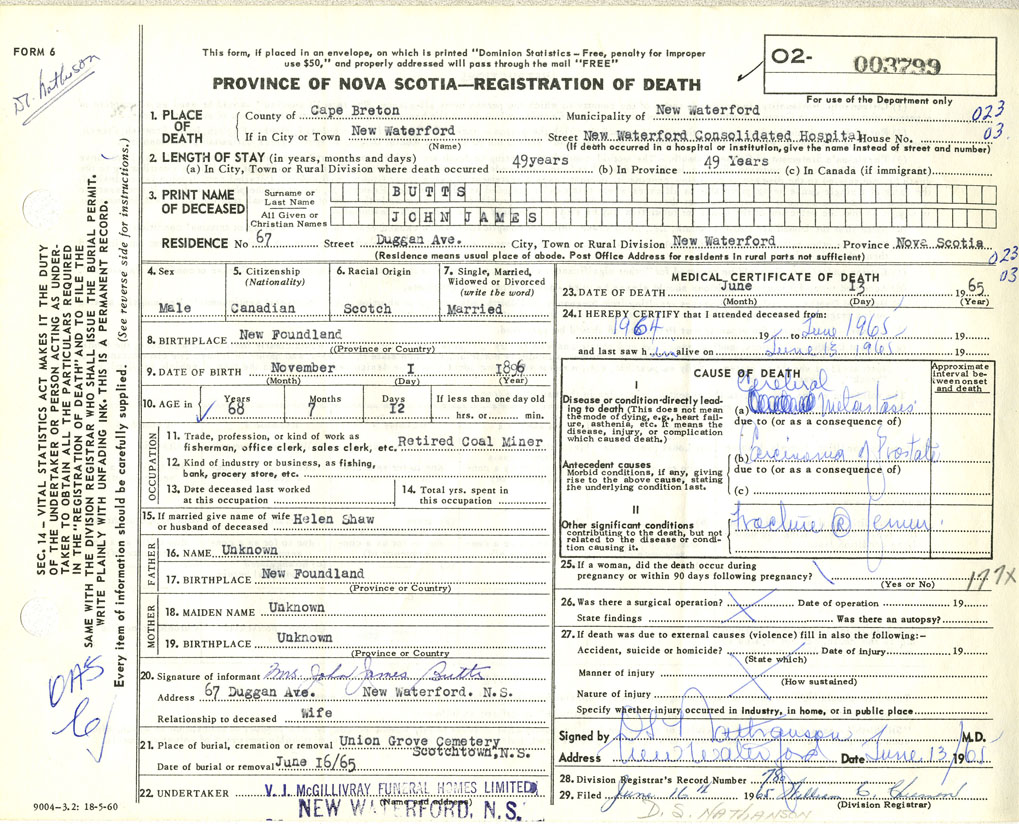 FORM 6
This form, if placed in an envelope, on which is printed "Dominion Statistics – Free, penalty for improper
use $50," and properly addressed will pass through the mail "FREE"
PROVINCE OF NOVA SCOTIA—REGISTRATION OF DEATH
02- 003799
For use of the Department only
Dr. Nathanson
1. PLACE OF DEATH
County of Cape Breton Municipality of New Waterford 023
If in City or Town New Waterford Street New Waterford Consolidated Hospital House No. 03.
(Name) (If death occurred in a hospital or institution, give the name instead of street and number)
2. LENGTH OF STAY (in years, months and days)
(a) In City, Town or Rural Division where death occurred 49years (b) In Province 49 Years (c) In Canada (if immigrant)
3. PRINT NAME OF DECEASED
Surname or Last Name BUTTS
All Given or Christian Names JOHN JAMES
RESIDENCE No 67 Street Duggan Ave. City, Town or Rural Division New Waterford Province Nova Scotia
(Residence means usual place of abode. Post Office Address for residents in rural parts not sufficient)
023
03
4. Sex
Male
5. Citizenship
(Nationality)
Canadian
6. Racial Origin
Scotch
7. Single, Married,
Widowed or Divorced
(write the word)
Married
8. BIRTHPLACE New Foundland
(Province or Country)
9. DATE OF BIRTH November I 1896
(Month) (Day) (Year)
10. AGE in Years Months Days If less than one day old
68 7 12 hrs. or min.
OCCUPATION
11. Trade, profession, or kind of work as
fisherman, office clerk, sales clerk, etc. Retired Coal Miner
12. Kind of industry or business, as fishing,
bank, grocery store, etc.
13. Date deceased last worked
at this occupation
14. Total yrs. spent in
this occupation
15. If married give name of wife Helen Shaw
or husband of deceased
FATHER
16. NAME Unknown
17. BIRTHPLACE New Foundland
(Province or Country)
MOTHER
18. MAIDEN NAME Unknown
19. BIRTHPLACE Unknown
(Province or Country
20. Signature of informant Mrs. John James Butts
Address 67 Duggan Ave. New Waterford. N.S.
Relationship to deceased Wife
21. Place of burial, cremation or removal Union Grove Cemetery
Scotchtown, N.S.
Date of burial or removal June 16/65
22. UNDERTAKER V. J. McGILLIVRAY FUNERAL HOMES LIMITED
(Name and address)
NEW WATERFORD, N.S.
MEDICAL CERTIFICATE OF DEATH
23. DATE OF DEATH June 13 1965
(Month) (Day) (Year)
24. I HEREBY CERTIFY that I attended deceased from:
1964 19 to June 1965 19
and last saw h im alive on June 13 1965 19
CAUSE OF DEATH
Approximate
interval be-
tween onset
and death
I
Disease or condition directly lead-
ing to death (This does not mean
the mode of dying, e.g., heart fail-
ure, asthenia, etc. It means the
disease, injury, or complication
which caused death.)
Cerebral
(a) Metastasis
due to (or as a consequence of)
Antecedent causes
Morbid conditions, if any, giving
rise to the above cause, stating
the underlying condition last.
(b) Carcinoma of Prostate
due to (or as a consequence of)
(c)
II
Other significant conditions
contributing to the death, but not
related to the disease or condi-
tion causing it.
Fracture (R) femur.
25. If a woman, did the death occur during
pregnancy or within 90 days following pregnancy?
(Yes or No)
177X
26. Was there a surgical operation? Date of operation 19
State findings Was there an autopsy?
27. If death was due to external causes (violence) fill in also the following:–
Accident, suicide or homicide? Date of injury 19
(State which)
Manner of injury
(How sustained)
Nature of injury
Specify whether injury occurred in industry, in home, or in public place
Signed by D S Nathanson M.D.
Address New Waterford Date June 13, 1965
28. Division Registrar's Record Number 78
29. Filed June 16th 1965 William
(Division Registrar)
D. S. NATHANSON
SEC. 14 – VITAL STATISTICS ACT MAKES IT THE DUTY
OF THE UNDERTAKER OR PERSON ACTING AS UNDER-
TAKER TO OBTAIN ALL THE PARTICULARS REQUIRED
IN THE "REGISTRATION OF DEATH" AND TO FILE THE
SAME WITH THE DIVISION REGISTRAR WHO SHALL ISSUE THE BURIAL PERMIT.
WRITE PLAINLY WITH UNFADING INK. THIS IS A PERMANENT RECORD.
Every item of information should be carefully supplied. (See reverse side for instructions.)
OAS
9004–3.2: 18-5-60